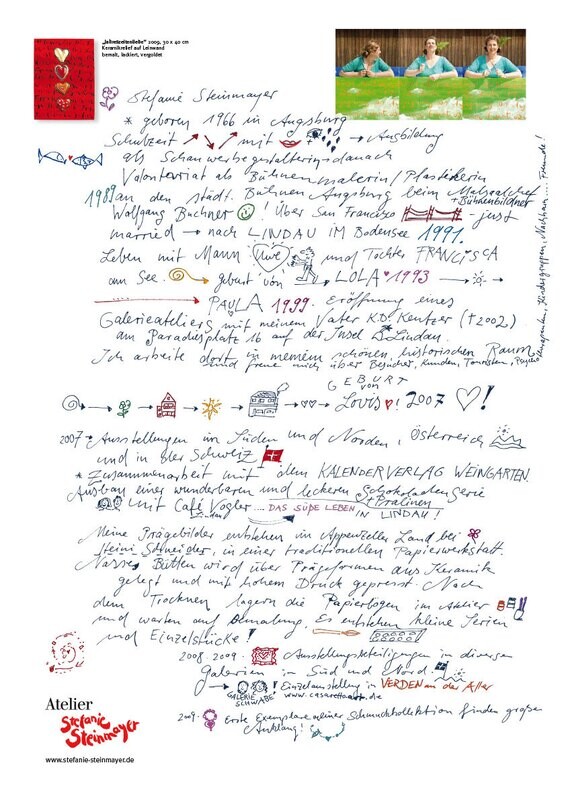 „Jahreszeitenliebe“ 2009, 30 x 40 cm
Keramikrelief auf Leinwand
bemalt, lackiert, vergoldet
Stefanie Steinmayer
* geboren 1966 in Augsburg
Schulzeit mit Ausbildung
als Schauwerbegestalterin danach
Volontariat als Bühnenmalerin/Plastikerin
1989 an den städt. Bühnen Augsburg beim Malsaalchef
+ Bühnenbildner
Wolfgang Buchner ! Über San Francisco - just
married → nach LINDAU IM Bodensee 1991.
Leben mit Mann Uwe und Tochter FRANCISCA
am See. geburt von LOLA 1993
PAULA 1999. Eröffnung eines
Galerieateliers mit meinem Vater K.D. Kentzer († 2002)
am Paradiesplatz 16 auf der Insel Lindau.
Ich arbeite dort in meinem schönen, historischen Raum
und freue mich über Besucher, Kunden, Touristen,
Kindergruppen, Nachbarn.... Freunde!
GEBURT
von
Lovis! 2007 !
2007 Ausstellungen im Süden und Norden, Österreich
und in der Schweiz
* Zusammenarbeit mit dem KALENDERVERLAG WEINGARTEN.
Ausbau einer wunderbaren und leckeren Schokoladenserie
+ Pralinen
mit Café Vogler .... DAS SÜßE LEBEN
IN LINDAU!
Meine Prägebilder entstehen im Appenzeller Land bei
Heini Schneider, in einer traditionellen Papierwerkstatt.
Nasses Bütten wird über Prägeformen aus Keramik
gelegt und mit hohem Druck gepresst. Nach
dem Trocknen lagern die Papierbögen im Atelier
und warten auf Bemalung. Es entstehen kleine Serien
und Einzelstücke!
2008 2009. Ausstellungsbeteiligungen in diversen
Galerien in Süd und Nord.
GALERIE
SCHWABE! Einzelausstellung in VERDEN an der Aller
2009. Erste Exemplare meiner Schmuckkollektion finden großen
Anklang!
Atelier
Stefanie
Steinmayer
www.stefanie-steinmayer.de